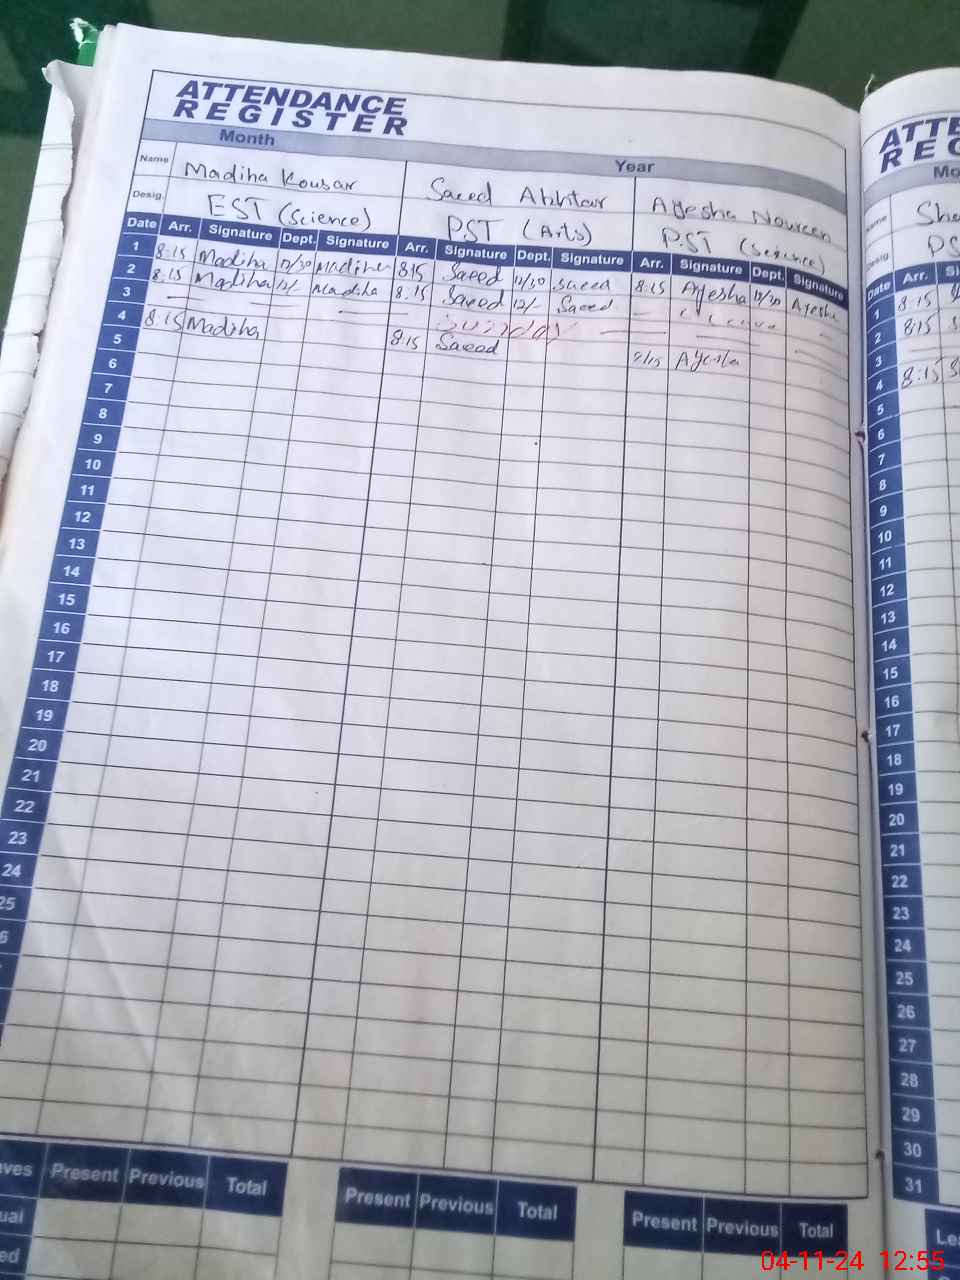 ATTENDANCE
REGISTER
Month Year
Name Madiha Kousar Saeed Akhtar Ayesha Noureen
Desig. EST (Science) PST (Arts) PST (Science)
Date Arr. Signature Dept. Signature Arr. Signature Dept. Signature Arr. Signature Dept. Signature
1 8:15 Madiha 12/30 Madiha 8:15 Saeed 12/30 Saeed 8:15 Ayesha 12/30 Ayesha
2 8:15 Madiha 12/ Madiha 8:15 Saeed 12/ Saeed
3 Sunday
4 8:15 Madiha 8:15 Saeed 8/15 Ayesha
5
6
7
8
9
10
11
12
13
14
15
16
17
18
19
20
21
22
23
24
25
Present Previous Total Present Previous Total Present Previous Total
ATTE
REG
Mo
Sha
Desig. PS
Date Arr. Si
1 8:15
2 8:15
3
4 8:15
5
6
7
8
9
10
11
12
13
14
15
16
17
18
19
20
21
22
23
24
25
26
27
28
29
30
31
Le
04-11-24 12:55